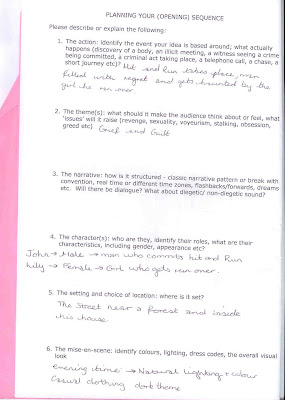 PLANNING YOUR (OPENING) SEQUENCE
Please describe or explain the following:
1. The action: identify the event your idea is based around; what actually
happens (discovery of a body, an illicit meeting, a witness seeing a crime
being committed, a criminal act taking place, a telephone call, a chase, a
short journey etc)? Hit and Run takes place, man
filled with regret and gets haunted by the
girl he ran over.
2. The theme(s): what should it make the audience think about or feel, what
'issues' will it raise (revenge, sexuality, voyeurism, stalking, obsession,
greed etc) Grief and Guilt
3. The narrative: how is it structured - classic narrative pattern or break with
convention, real time or different time zones, flashbacks/forwards, dreams
etc. Will there be dialogue? What about diegetic/ non-diegetic sound?
4. The character(s): who are they, identify their roles, what are their
characteristics, including gender, appearance etc?
John → Male → man who commits hit and Run
→ Female → Girl who gets run over.
5. The setting and choice of location: where is it set?
The Street near a forest and inside
his house.
6. The mise-en-scene: identify colours, lighting, dress codes, the overall visual
look
evening time → Natural lighting + colour
Casual clothing dark theme